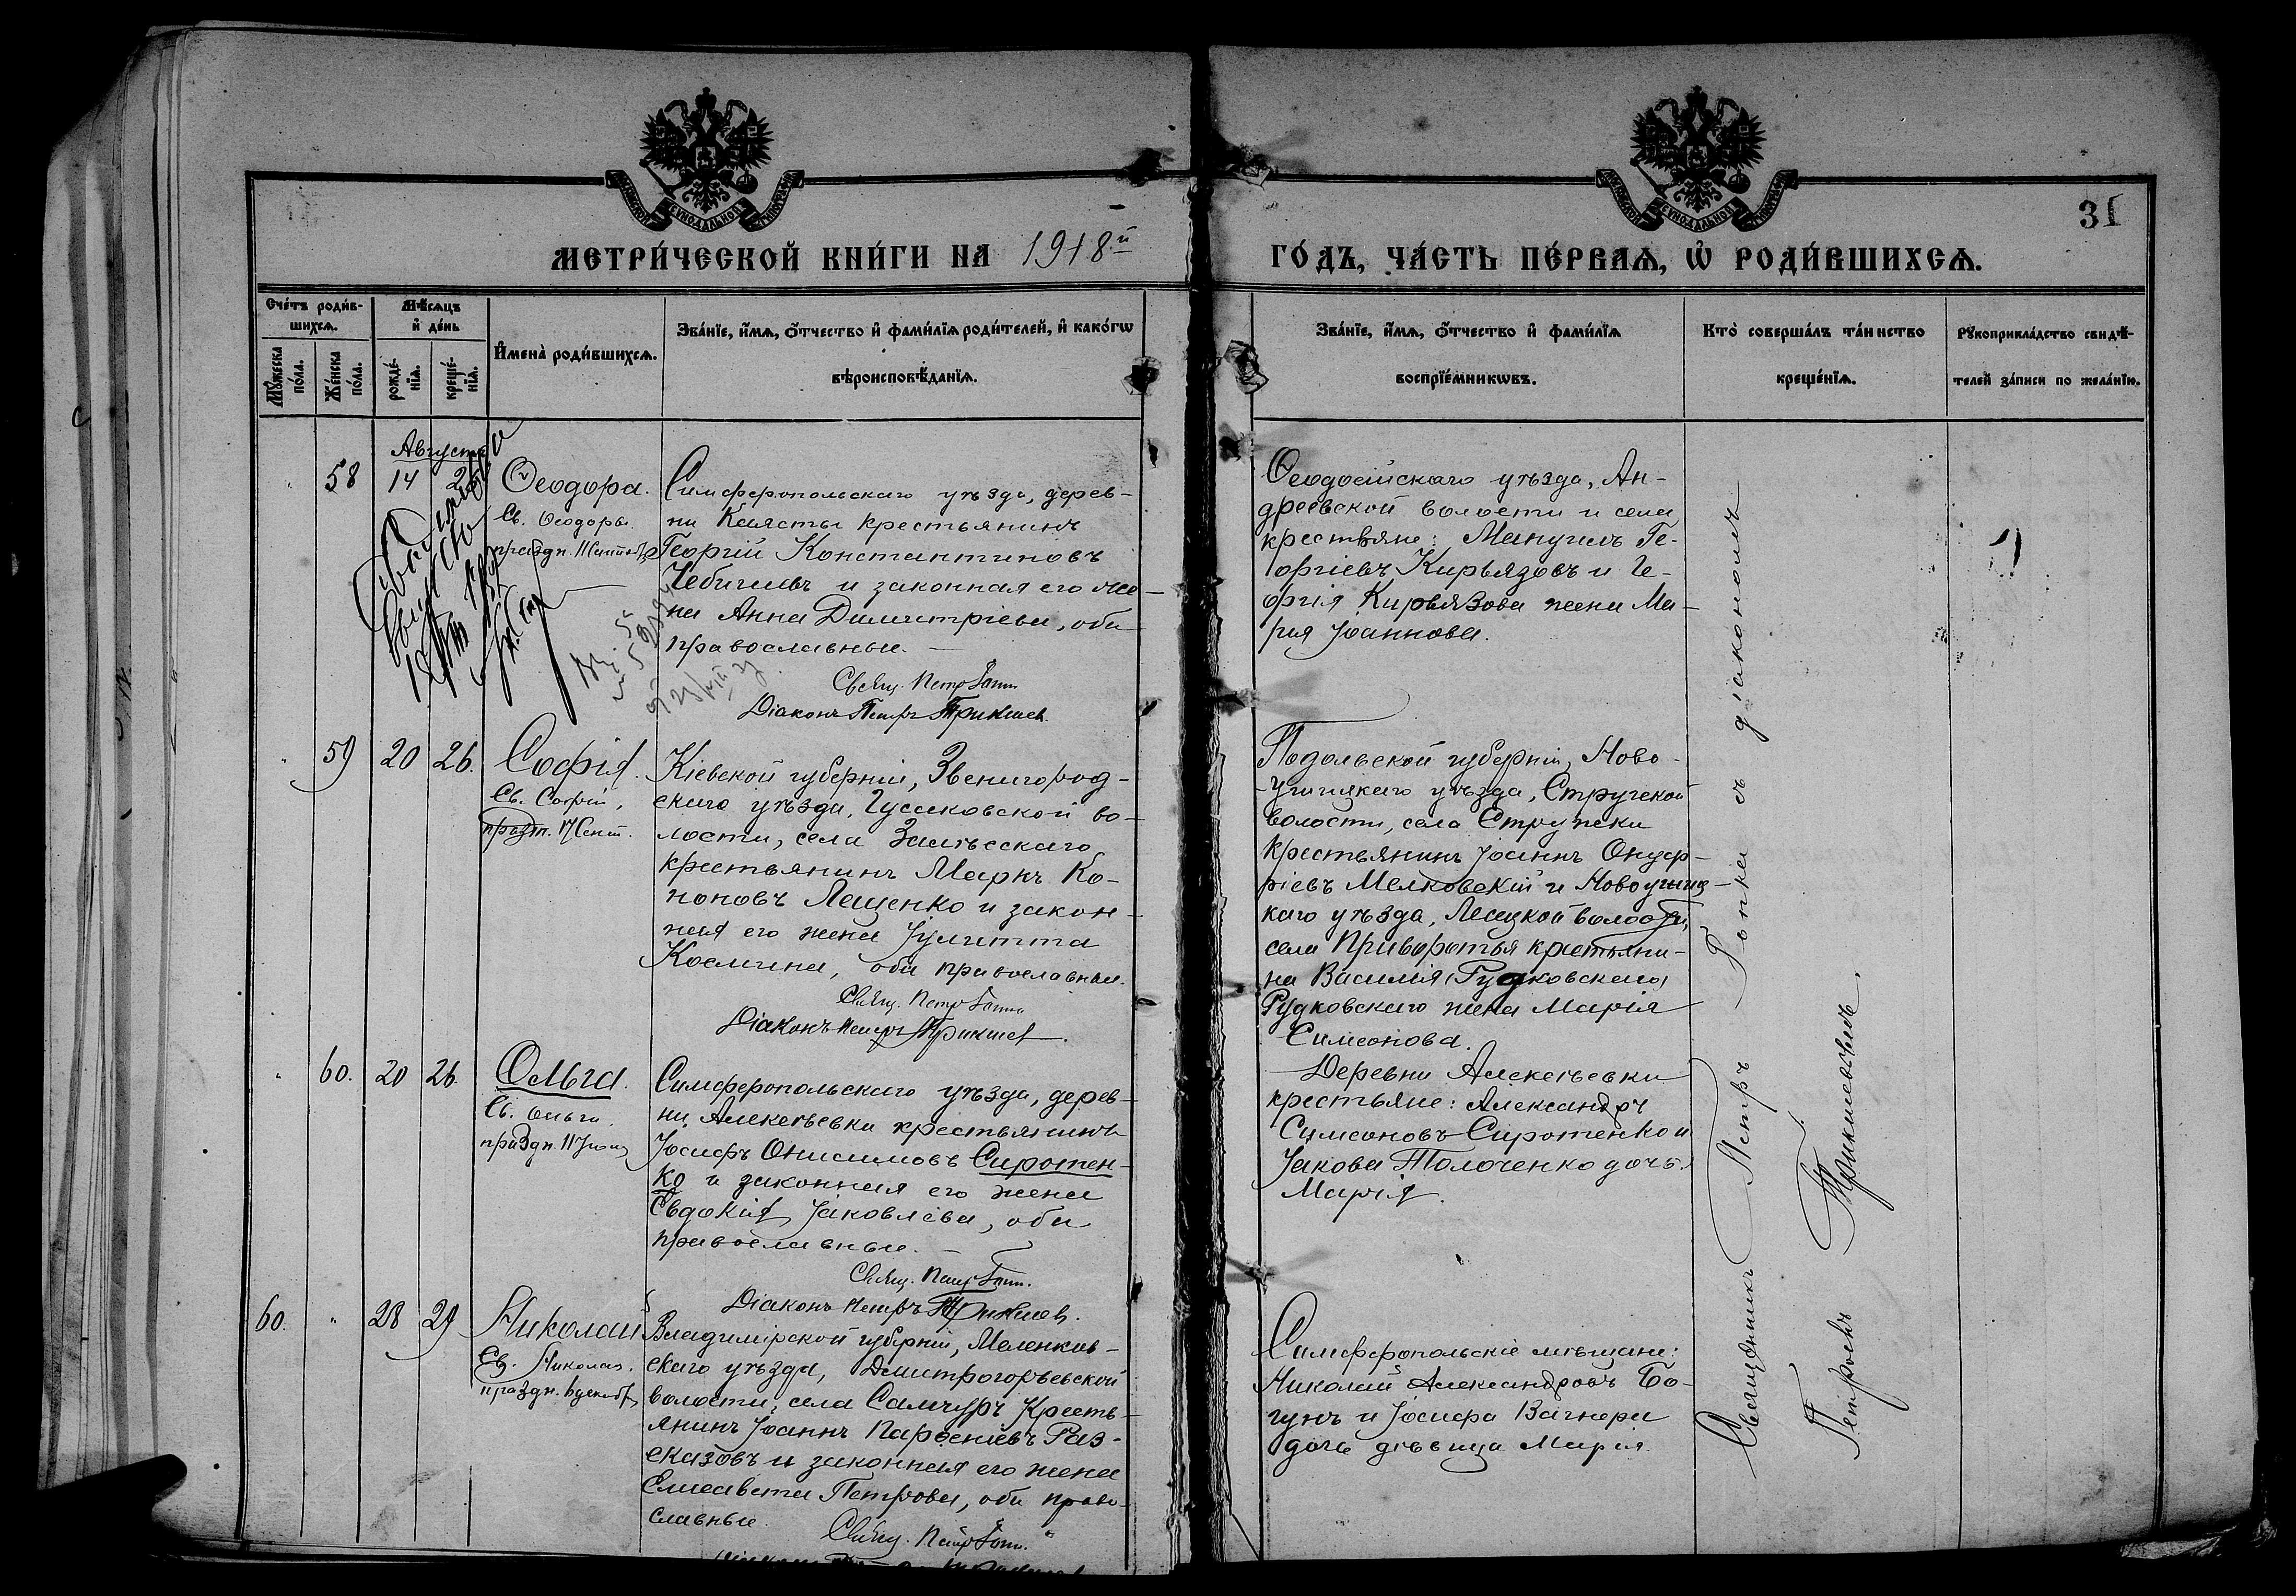 31
МЕТРИ́ЧЕСКОЙ КНИ́ГИ НА 1918й ГО́ДЪ, ЧА́СТЬ ПЕ́РВАѦ, Ѡ҆ РОДИ́ВШИХСѦ.
Счетъ роди́в-
шихсѧ.
Мꙋжеска по́ла.
Же́нска по́ла.
Мѣ́сѧцъ
и҆ де́нь
рожде́-
нїѧ.
креще́-
нїѧ.
И҆мена̀ роди́вшихсѧ.
Зва́нїе, и҆́мѧ, ѻ҆́тчество и҆ фами́лїѧ роди́телей, и҆ како́гѡ
вѣроисповѣ́данїѧ.
Зва́нїе, и҆́мѧ, ѻ҆́тчество и҆ фами́лїѧ
воспрїе́мникѡвъ.
Кто̀ соверша́лъ та́инство
креще́нїѧ.
Рꙋкоприкла́дство свидѣ́-
телей за́писи по жела́нїю.
Августъ
58 14 26
Ѳеодора.
Св. Ѳеодоры
праздн. 11 Сентяб.
Симферопольскаго уѣзда, дерев-
ни Коясты крестьянинъ
Георгій Константиновъ
Чебичевъ и законная его же-
на Анна Димитріева, оба
православные.
Свящ. Петр
Діаконъ Петръ Прикшев.
Ѳеодосійскаго уѣзда, Ан-
дреевской волости и села
крестьяне: Мануилъ Ге-
оргіевъ Кирьязовъ и Ге-
оргія Кирьязова жена Ма-
рія Іоаннова.
59 20 26.
Софія.
Св. Софіи,
праздн. 17 Сент.
Кіевской губерніи, Звенигород-
скаго уѣзда, Гусаковской во-
лости, села Залѣсскаго
крестьянинъ Маркъ Ко-
ноновъ Лещенко и закон-
ная его жена Іулитта
Космина, оба православные.
Свящ. Петр
Діаконъ Петръ Прикшев.
Подольской губерніи, Ново-
-Ушицкаго уѣзда, Стружской
волости, села Стружки
крестьянинъ Іоаннъ Онуф-
ріевъ Мелковскій и Новоушиц-
каго уѣзда, волости,
села Приворотья крестьяни-
на Василія Гудковскаго
Рудковскаго жена Марія
Симеонова.
60. 20 26.
Ольга.
Св. Ольги
праздн. 11 Іюля
Симферопольскаго уѣзда, дерев-
ни, Алексѣевки крестьянинъ
Іосифъ Онисимовъ Сиротен-
ко и законная его жена
Евдокія Іаковлева, оба
православные.
Свящ. Петр
Діаконъ Петръ Прикшев.
Деревни Алексѣевки
крестьяне: Александръ
Симеоновъ Сиротенко и
Іакова Толоченко дочь
Марія.
60. " 28 29
Николай
Св. Николая.
праздн. 6 декаб.
Владимірской губерніи, Меленков-
скаго уѣзда, Дмитрогорьевской
волости, села Самчуръ Кресть-
янинъ Іоаннъ Парѳеніевъ Раз-
сказовъ и законная его жена
Елисавета Петрова, оба право-
славные.
Свящ. Петр
Симферопольскіе мѣщане:
Николай Александровъ Бо-
гунъ и Іосифа Вагнера
дочь дѣвица Марія.
Священникъ Петръ съ діакономъ
Петромъ Прикшевымъ.